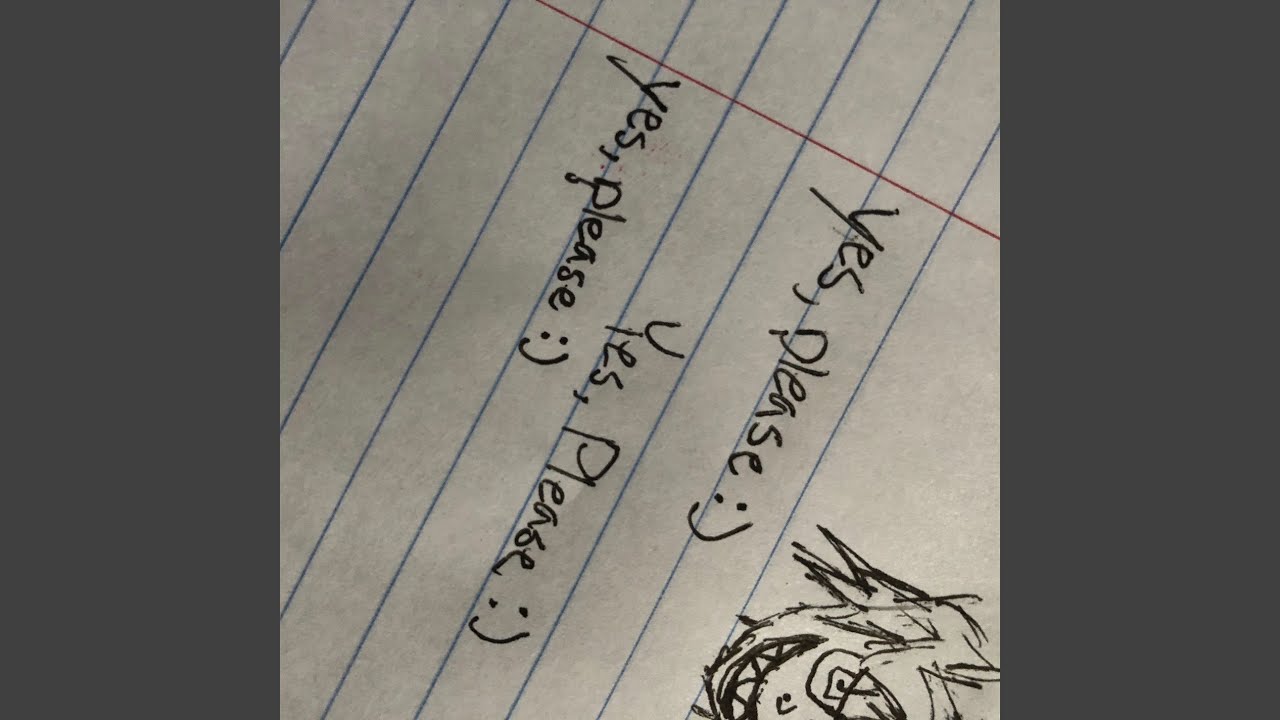 yes, please :)
Yes, Please :)
yes, please :)